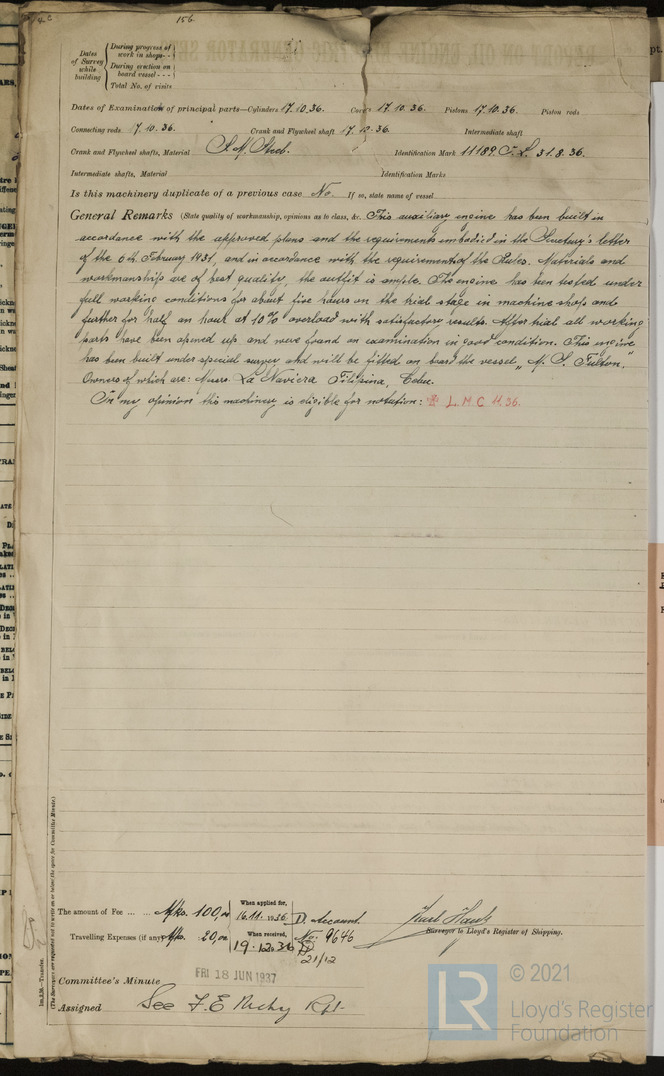 156
Dates of Survey while building
During progress of work in shops - -
During erection on board vessel - - -
Total No. of visits
Dates of Examination of principal parts—Cylinders 17.10.36. Covers 17.10.36. Pistons 17.10.36. Piston rods
Connecting rods 17.10.36. Crank and Flywheel shaft 17.10.36. Intermediate shaft
Crank and Flywheel shafts, Material S.M. Steel. Identification Mark 11189 31.8.36.
Intermediate shafts, Material Identification Marks
Is this machinery duplicate of a previous case No. If so, state name of vessel
General Remarks (State quality of workmanship, opinions as to class, &c. This auxiliary engine has been built in
accordance with the approved plans and the requirements embodied in the Secretary's letter
of the 6th February 1931, and in accordance with the requirement of the Rules. Materials and
workmanship are of best quality, the outfit is ample. The engine has been tested under
full working conditions for about five hours on the trial stage in machine shop and
further for half an hour at 10% overload with satisfactory results. After trial all working
parts have been opened up and were found on examination in good condition. This engine
has been built under special survey and will be fitted on board the vessel „M. S. Fulton."
Owners of which are: Messrs. La Naviera Filipina, Cebu.
In my opinion this machinery is eligible for notation: L.M.C. 11.36.
The amount of Fee ... ... Mks. 100,00 When applied for, 16.11.1936 D. Account
Travelling Expenses (if any) Mks. 20,00 When received, 19.12.36 No. 9646
21/12
Surveyor to Lloyd's Register of Shipping.
Committee's Minute FRI 18 JUN 1937
Assigned See F.E. Rpt.
(The Surveyors are requested not to write on or below the space for Committee Minute.)
© 2021
LR
Lloyd's Register
Foundation